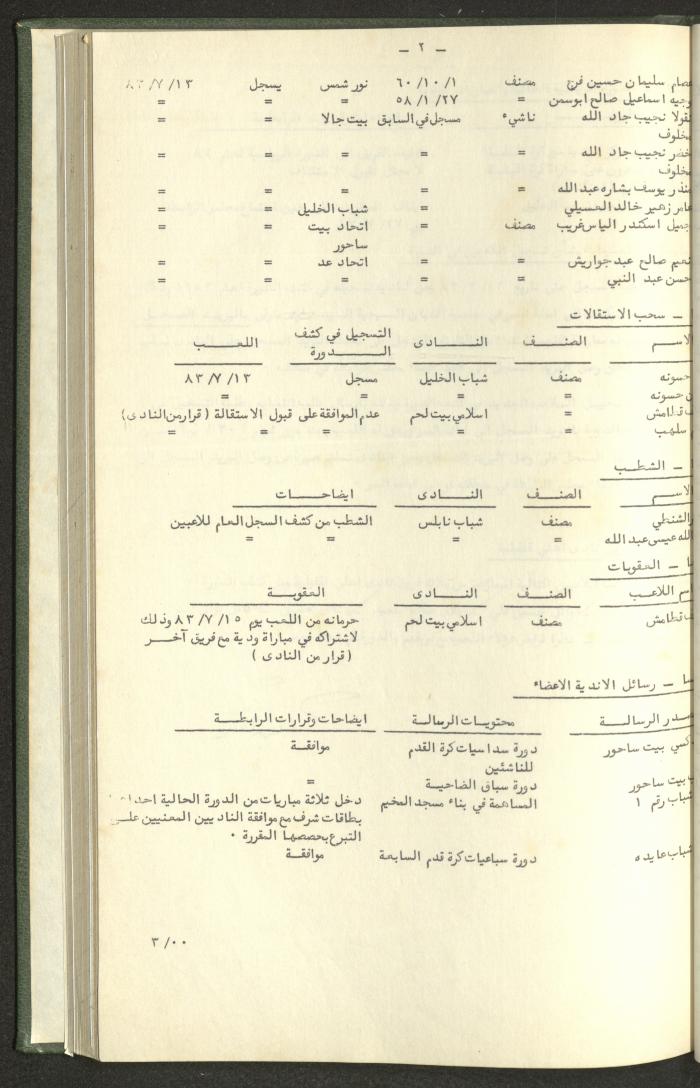 — ٢ —
عصام سليمان حسين فرج مصنف ١/ ١٠/ ٦٠ نور شمس يسجل ١٣/ ٧/ ٨٣
وجيه اسماعيل صالح ابوسمن = ٢٧/ ١/ ٥٨ = = =
نقولا نجيب جاد الله ناشيء مسجل في السابق بيت جالا = =
مخلوف
خضر نجيب جاد الله = = = = =
مخلوف
منذر يوسف بشاره عبد الله = = = = =
عامر زهير خالد العسيلي = = شباب الخليل = =
جميل اسكندر الياس غريب مصنف = اتحاد بيت = =
ساحور
نعيم صالح عبد جواريش = = اتحاد عد = =
حسن عبد النبي = = = = =
— سحب الاستقالات
الاسم الصنف النادى التسجيل في كشف الدورة اللعب
حسونه مصنف شباب الخليل مسجل ١٣/ ٧/ ٨٣
ن حسونه = = = =
قطامش = اسلامي بيت لحم عدم الموافقة على قبول الاستقالة ( قرار من النادى )
سلهب = = = = =
— الشطب
الاسم الصنف النادى ايضاحات
الشنطي مصنف شباب نابلس الشطب من كشف السجل العام للاعبين
الله عيسى عبد الله = = = =
— العقوبات
اسم اللاعب الصنف النادى العقوبة
قطامش مصنف اسلامي بيت لحم حرمانه من اللعب يوم ١٥/ ٧/ ٨٣ وذلك
لاشتراكه في مباراة ودية مع فريق آخر
( قرار من النادى )
— رسائل الاندية الاعضاء
صدر الرسالة محتويات الرسالة ايضاحات وقرارات الرابطة
بيت ساحور دورة سداسيات كرة القدم موافقة
للناشئين
بيت ساحور دورة سباق الضاحية =
شباب رقم ١ المساهمة في بناء مسجد المخيم دخل ثلاثة مباريات من الدورة الحالية
بطاقات شرف مع موافقة الناديين المعنيين على
التبرع بحصصها المقررة .
شباب عايده دورة سباعيات كرة قدم السابعة موافقة
٠٠/ ٣